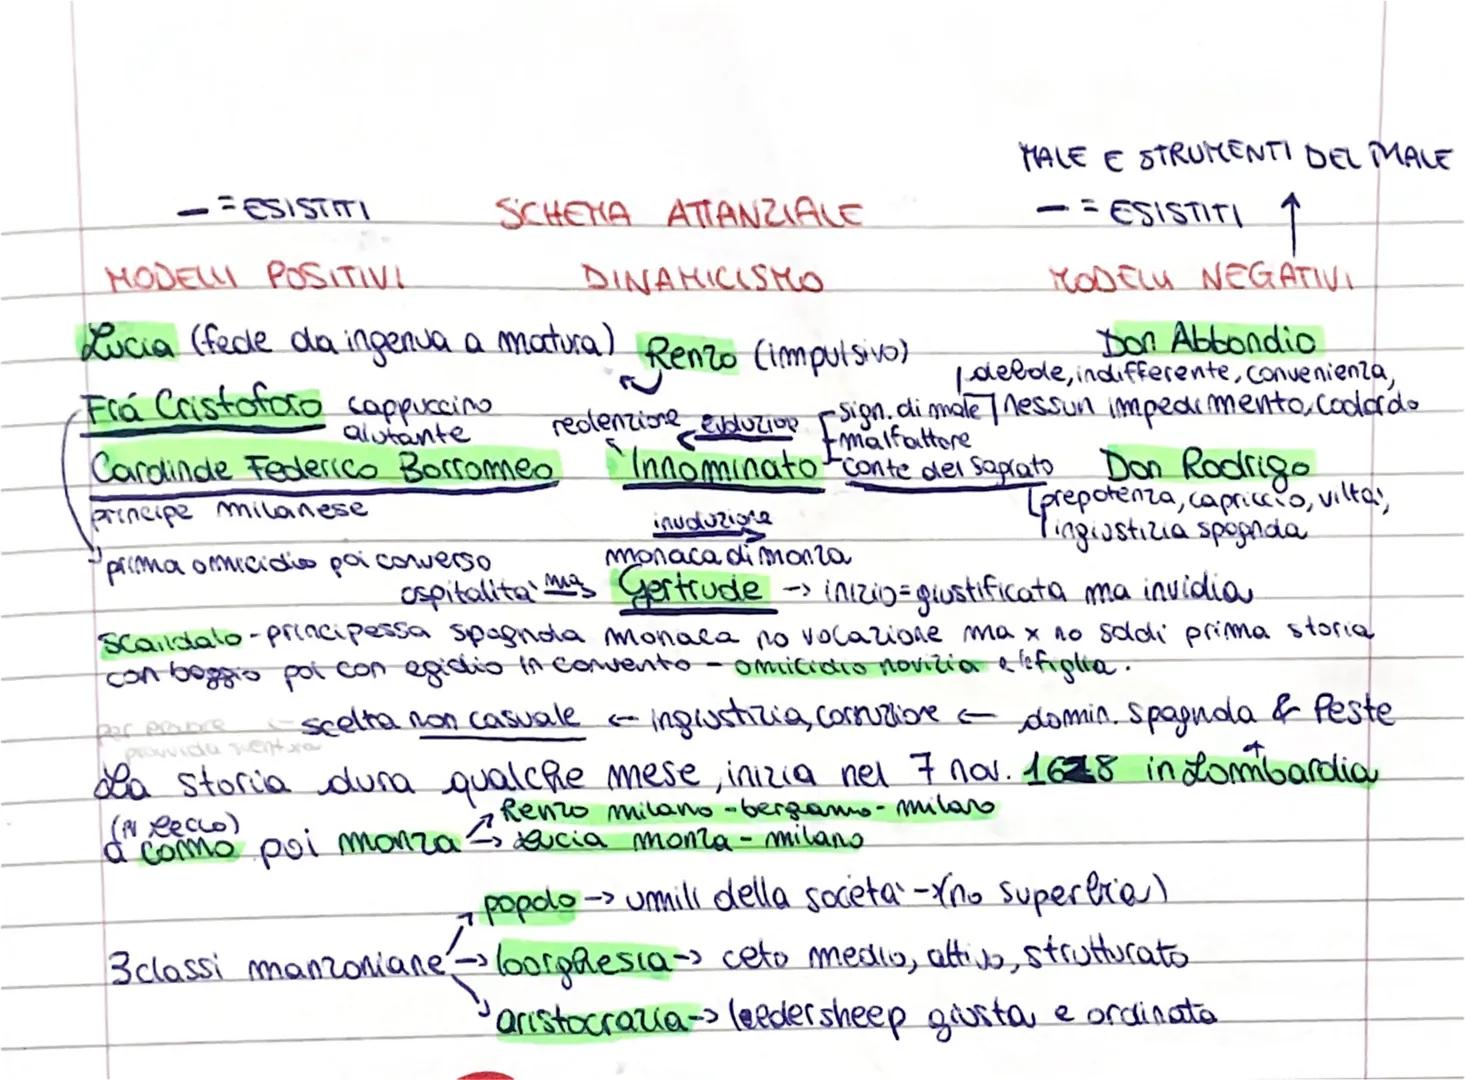 MALE E STRUMENTI DEL MALE
— = ESISTITI SCHEMA ATTANZIALE — = ESISTITI ↑
MODELLI POSITIVI DINAMICISMO MODELLI NEGATIVI
Lucia (fede da ingenua a matura) Renzo (impulsivo) Don Abbondio
debole, indifferente, convenienza,
nessun impedimento, codardo
Frá Cristoforo cappuccino
aiutante
redenzione evoluzione
sign. di male
malfattore
Cardinale Federico Borromeo Innominato conte del Sagrato Don Rodrigo
principe milanese
prepotenza, capriccio, viltà,
ingiustizia spagnola
involuzione
prima omicidio poi converso monaca di monza
ospitalità ma Gertrude -> inizio=giustificata ma invidia
scandalo - principessa spagnola monaca no vocazione ma x no soldi prima storia
con baggio poi con egidio in convento - omicidio novizia e la figlia.
per provvida sventura
scelta non casuale <- ingiustizia, corruzione <- domin. spagnola & Peste
La storia dura qualche mese, inizia nel 7 nov. 1628 in Lombardia
(a Lecco)
a como poi monza
↗ Renzo milano - bergamo - milano
-> Lucia monza - milano
popolo -> umili della società -> (no superbia)
3 classi manzoniane -> borghesia -> ceto medio, attivo, strutturato
aristocrazia -> leedersheep giusta e ordinata